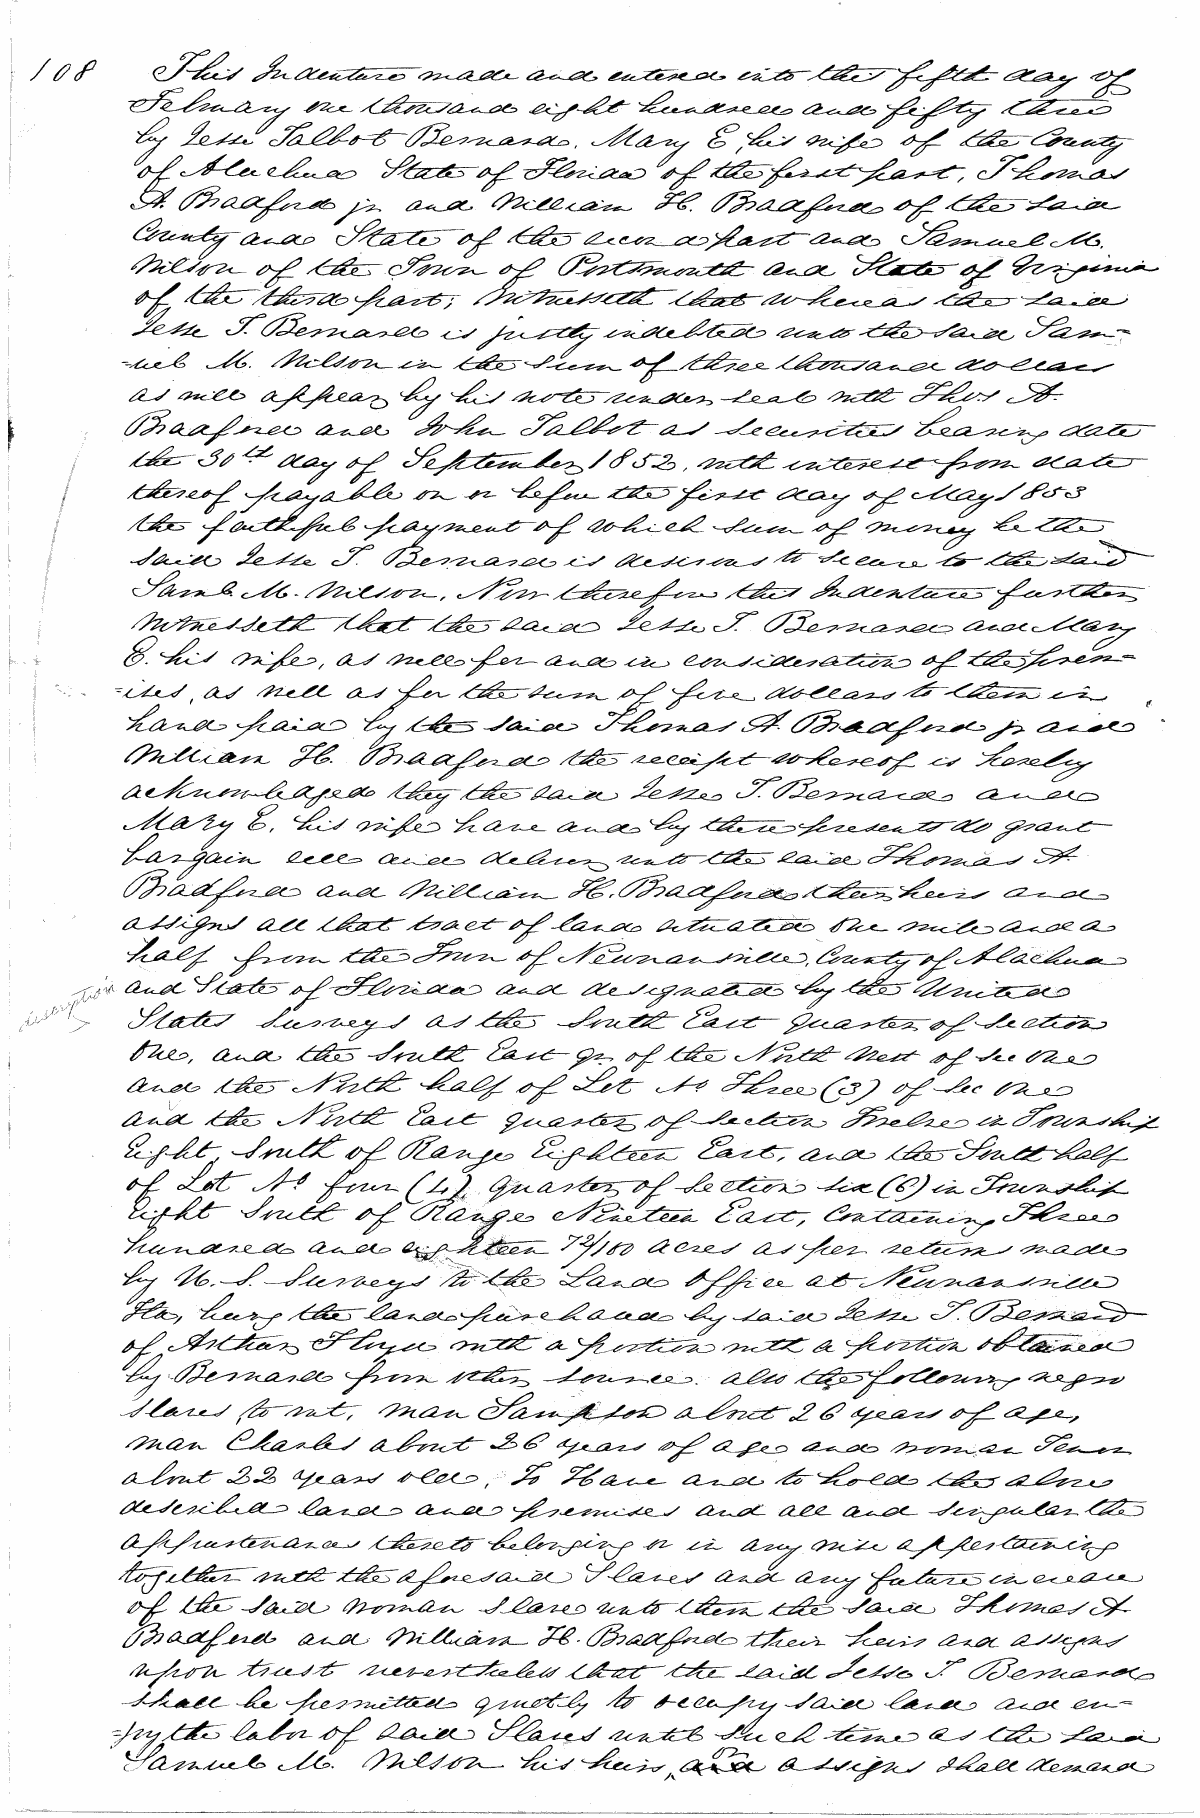 108 This Indenture made and entered into this fifth day of
February one thousand eight hundred and fifty three
by Jesse Talbot Bernard, Mary E, his wife of the County
of Alachua State of Florida of the first part, Thomas
A. Bradford jr and William H. Bradford of the said
County and State of the second part and Samuel M.
Wilson of the Town of Portsmouth and State of Virginia
of the third part; Witnesseth that whereas the said
Jesse T. Bernard is justly indebted unto the said Sam-
-uel M. Wilson in the sum of three thousand dollars
as will appear by his note under seal with Thos A.
Bradford and John Talbot as securities bearing date
the 30th day of September 1852, with interest from date
thereof payable on or before the first day of May 1853
the faithful payment of which sum of money he the
said Jesse T. Bernard is desirous to secure to the said
Saml M. Wilson, Now therefore this Indenture further
Witnesseth that the said Jesse T. Bernard and Mary
E. his wife, as well for and in consideration of the prem-
-ises, as well as for the sum of five dollars to them in
hand paid by the said Thomas A. Bradford jr and
William H. Bradford the receipt whereof is hereby
acknowledged they the said Jesse T. Bernard and
Mary E, his wife have and by these presents do grant
bargain sell and deliver unto the said Thomas A.
Bradford and William H. Bradford their heirs and
assigns all that tract of land situated one mile and a
half from the Town of Newnansville, County of Alachua
description and State of Florida and designated by the United
States Surveys as the South East Quarter of Section
One, and the South East qr. of the North West of Sec One
and the North half of Lot No Three (3) of Sec One
and the North East quarter of Section Twelve in Township
Eight South of Range Eighteen East, and the South half
of Lot No four (4), quarter of Section six (6) in Township
Eight South of Range Nineteen East, Containing Three
hundred and eighteen 72/100 acres as per return made
by U. S. Surveys to the Land Office at Newnansville
Fla, being the land purchased by said Jesse T. Bernard
of Arthur with a portion with a portion obtained
by Bernard from other source. also the following negro
slaves to wit, man Sampson about 26 years of age,
man Charles about 26 years of age and woman
about 22 years old, To Have and to hold the above
described land and premises and all and singular the
appurtenances thereto belonging or in any wise appertaining
together with the aforesaid Slaves and any future increase
of the said woman slave unto them the said Thomas A
Bradford and William H. Bradford their heirs and assigns
upon trust nevertheless that the said Jesse T. Bernard
shall be permitted quietly to occupy said land and en-
-joy the labor of said Slaves until such time as the said
Samuel M. Wilson his heirs, or assigns shall demand